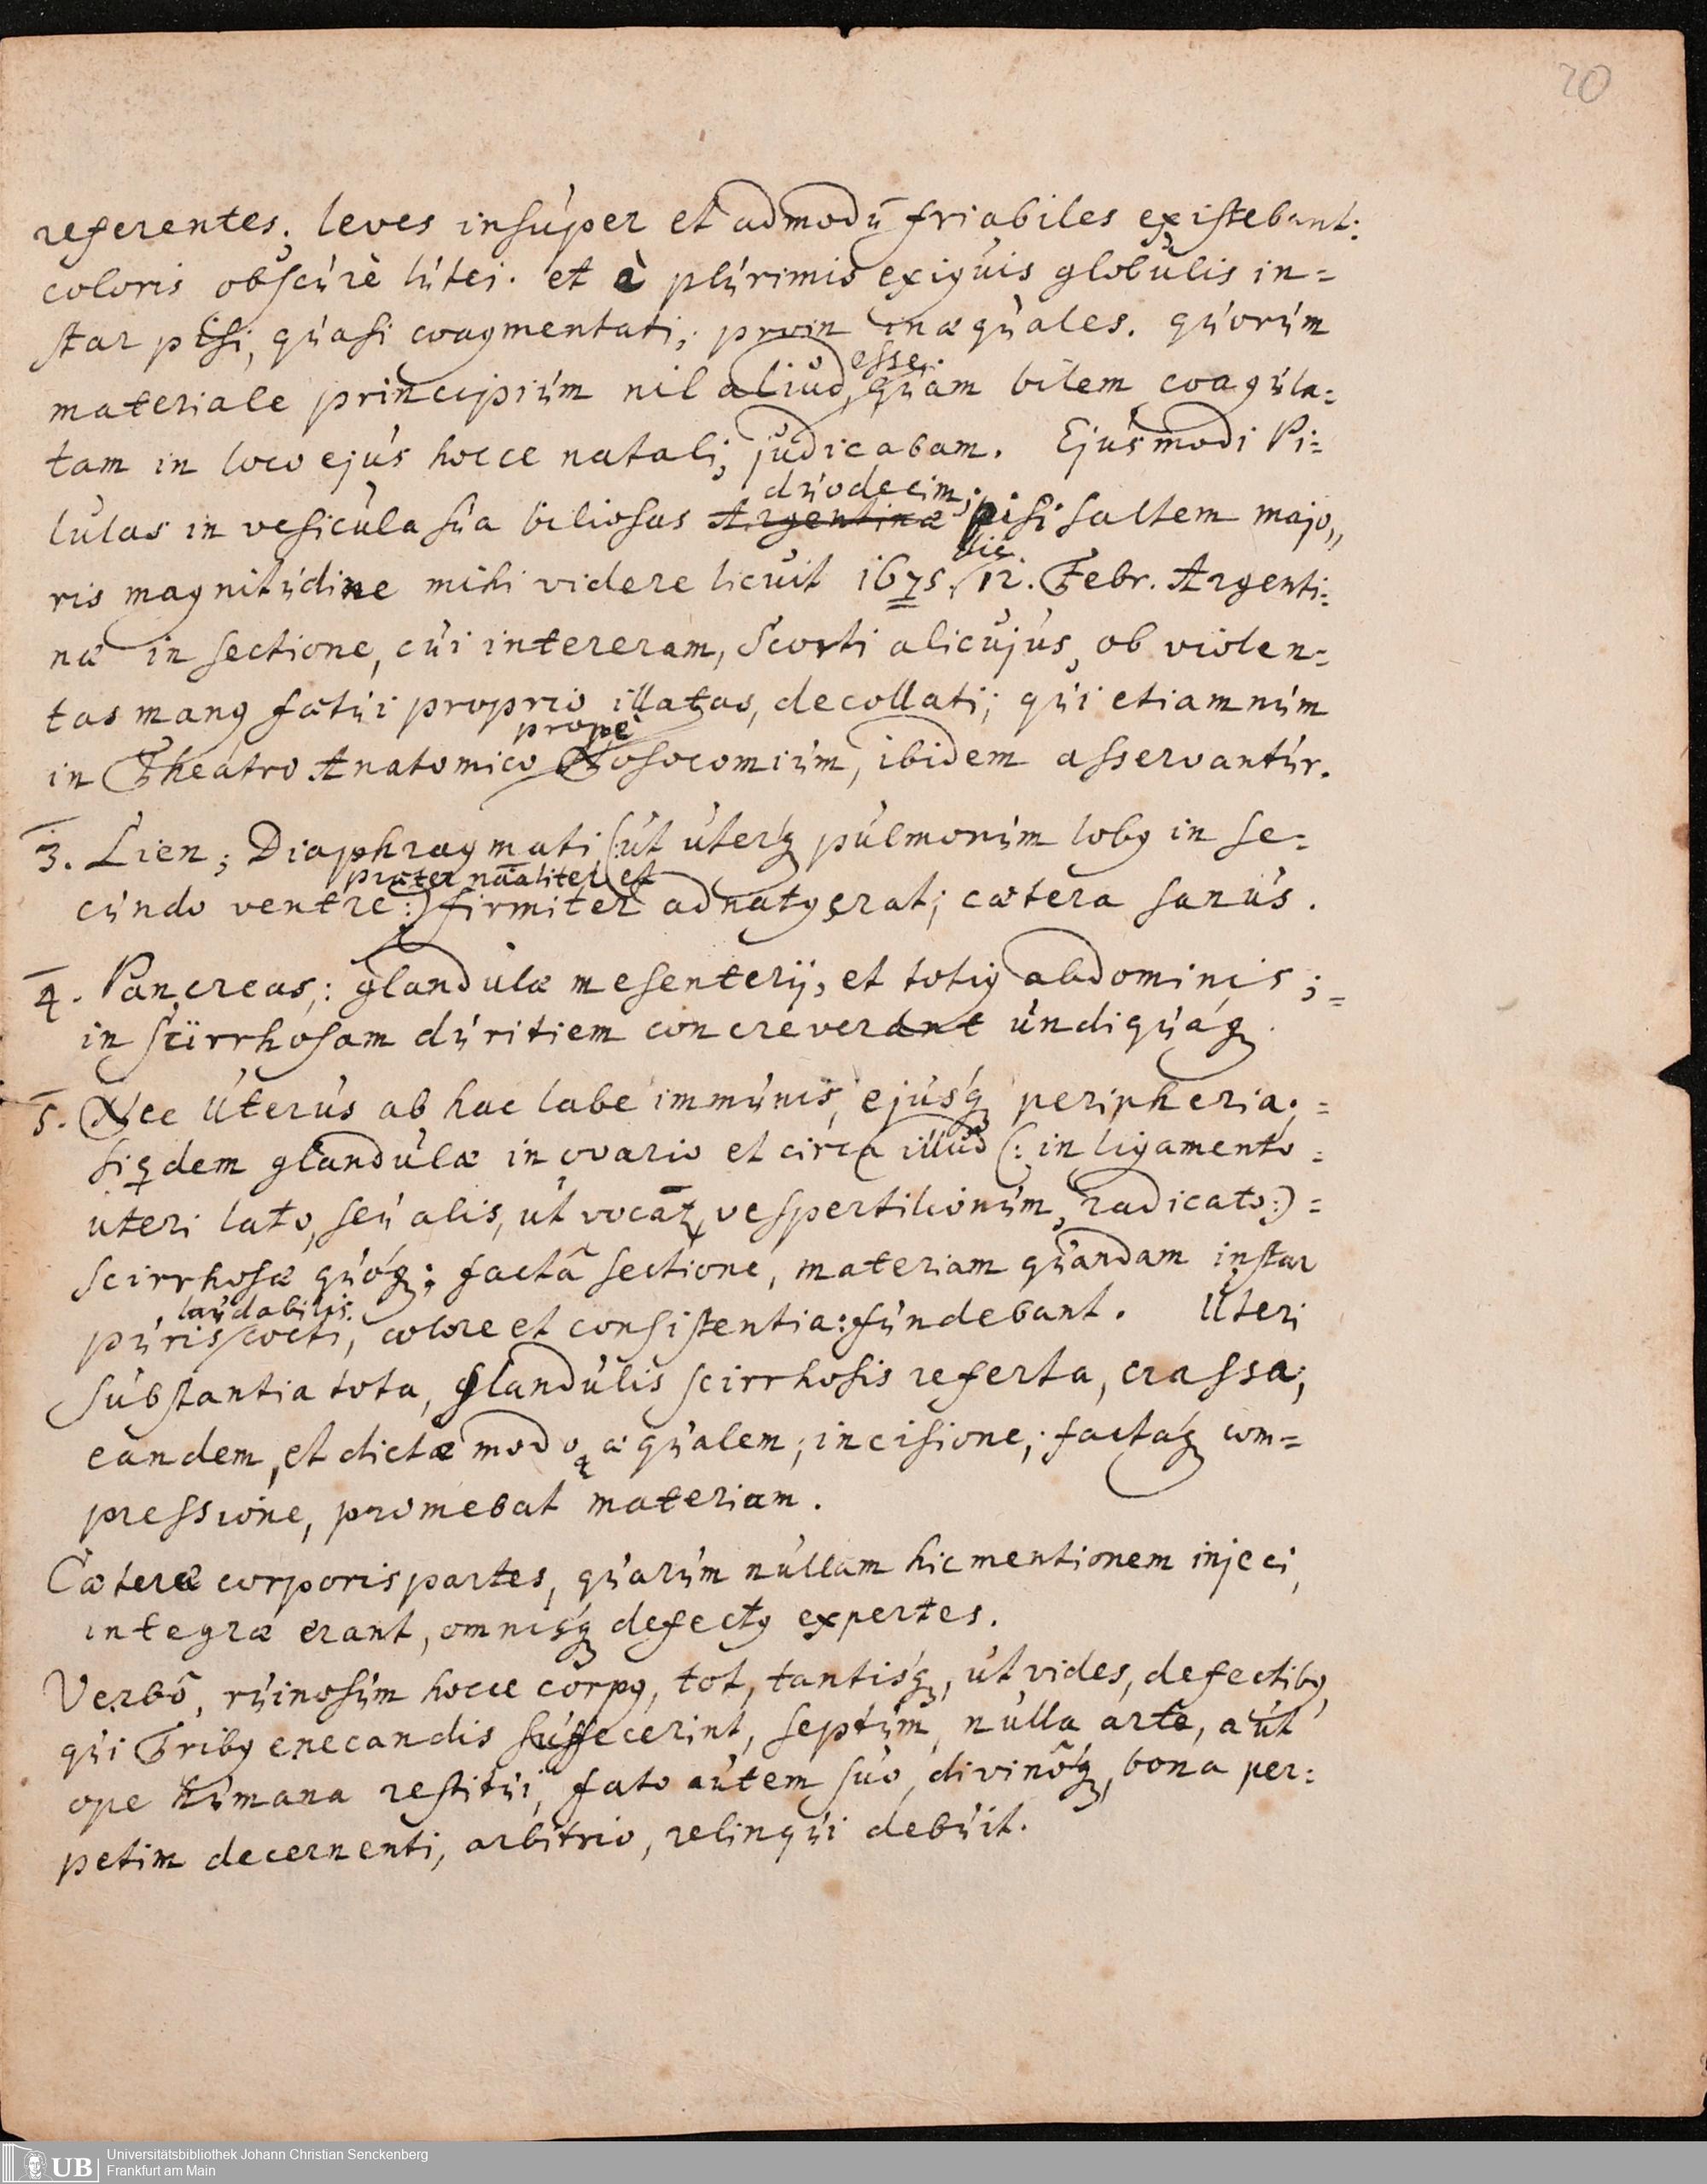 20
referentes; leves insuper et admodū friabiles existebant:
coloris obscurè lutei. et è plurimis exiguis globulis in=
star pisi, quasi coagmentati; proin inæquales. quorum
esse
materiale principium nil aliud, quàm bilem coagula=
tam in loco ejus hocce natali, judicabam. Ejusmodi Pi=
duodecim;
lulas in vesicula sua biliosas Argentinæ pisi saltem majo,,
die
ris magnitudine mihi videre licuit 1675. 12. Febr. Argenti=
næ in sectione, cui intereram, Scorti alicujus, ob violen=
tas manꝰ fœtui proprio illatas, decollati; qui etiamnum
propè
in Theatro Anatomico Nosocomium, ibidem asservantur.
3. Lien; Diaphragmati (: ut uterq́ꝫ pulmonum lobꝰ in se=
præter nāaliter et
cundo ventre:) firmiter adnatꝰ erat; cætera sanus.
4. Pancreas; glandulæ mesenterij, et totiꝰ abdominis; =
in scirrhosam duritiem concreverant undiquáqꝫ.
5. Nec Uterus ab hac labe immunis, ejusq́ꝫ peripheria; =
siqdem glandulæ in ovario et circa illud (: in ligamento =
uteri lato, seu alis, ut vocāt, vespertilionum, radicato:) =
scirrhosæ quóqꝫ; factâ sectione, materiam quandam instar
laudabilis
puris cocti, colore et consistentia: fundebant. Uteri
substantia tota, glandulis scirrhosis referta, crassa;
eandem, et dictæ modo æqualem; incisione; factáqꝫ com=
pressione, promebat materiam.
Cæteræ corporis partes, quarum nullam hic mentionem injeci,
integræ erant, omnisq́ꝫ defectꝰ expertes.
Verbô, ruinosum hocce corpꝰ, tot, tantisq́ꝫ, ut vides, defectibꝰ,
qui Tribꝰ enecandis suffecerint, septum, nulla arte, aut
ope humana restitui, fato autem suo, divinôqꝫ, bona per=
petim decernenti, arbitrio, relinqui debuit.
UB
Universitätsbibliothek Johann Christian Senckenberg
Frankfurt am Main